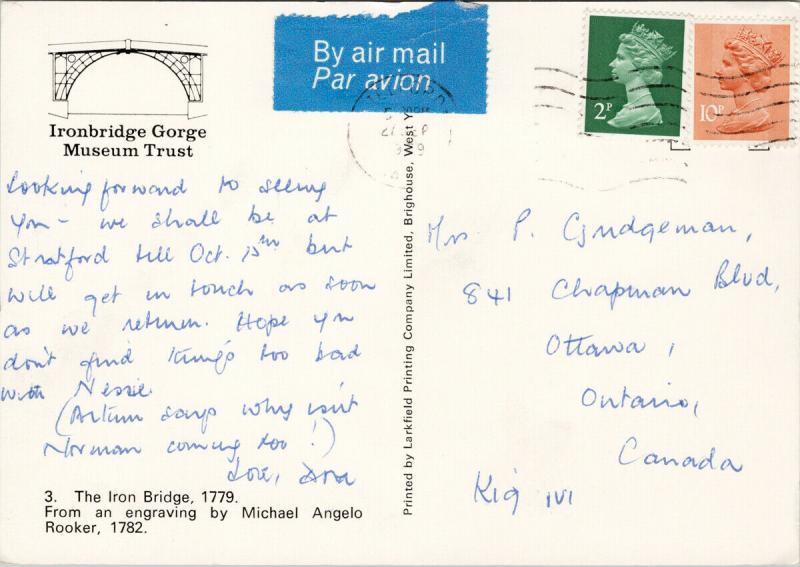 Ironbridge Gorge
Museum Trust
By air mail
Par avion
2P
10P
Looking forward to seeing
you - we shall be at
Stratford till Oct. 15th but
will get in touch as soon
as we return. Hope you
don't find things too bad
with Nessie.
(Arthur says why isn't
Norman coming too!)
Love, Dora
3. The Iron Bridge, 1779.
From an engraving by Michael Angelo
Rooker, 1782.
Printed by Larkfield Printing Company Limited, Brighouse, West Y
Mrs P. Gudgeman,
841 Chapman Blvd,
Ottawa,
Ontario,
Canada
K1G 1V1